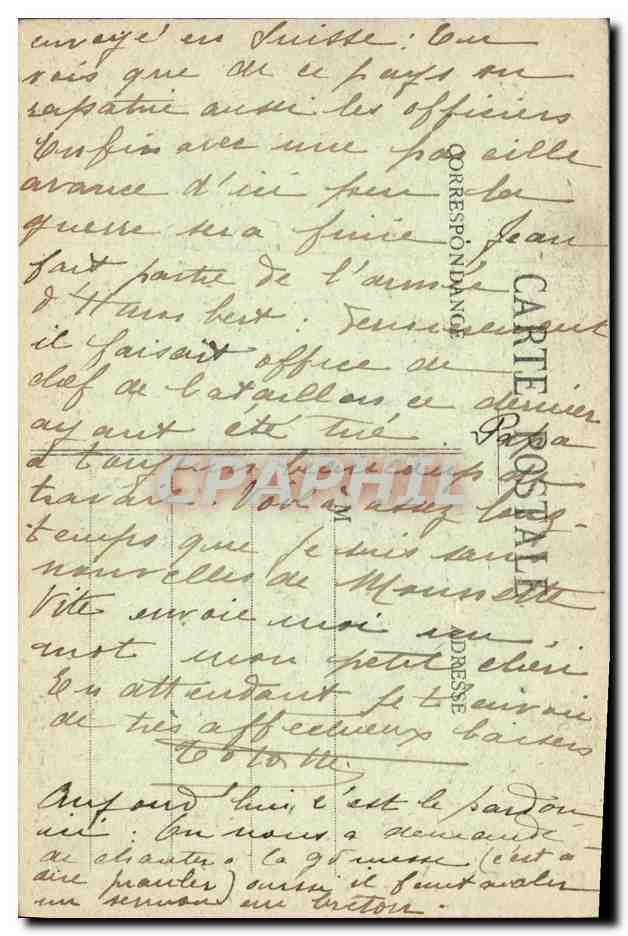 envoyé en Suisse : Tu
vois que de ce pays on
rapatrie aussi les officiers
Enfin avec une pareille
avance d'ici peu la
guerre sera finie Jean
fait partie de l'armée
d'Humbert :
il faisait office de
chef de bataillon ce dernier
ayant été tué Papa
a toujours beaucoup de
travail. Voilà assez long-
temps que je suis sans
nouvelles de Mounette
Vite envoie moi un
mot mon petit chéri
En attendant je t'envoie
de très affectueux baisers
Aujourd'hui c'est le pardon
ici : On nous a demandé
de chanter à la messe (c'est à
dire) aussi il faut avaler
un sermon en breton.
CARTE POSTALE
CORRESPONDANCE
ADRESSE
M
CPAPHIL